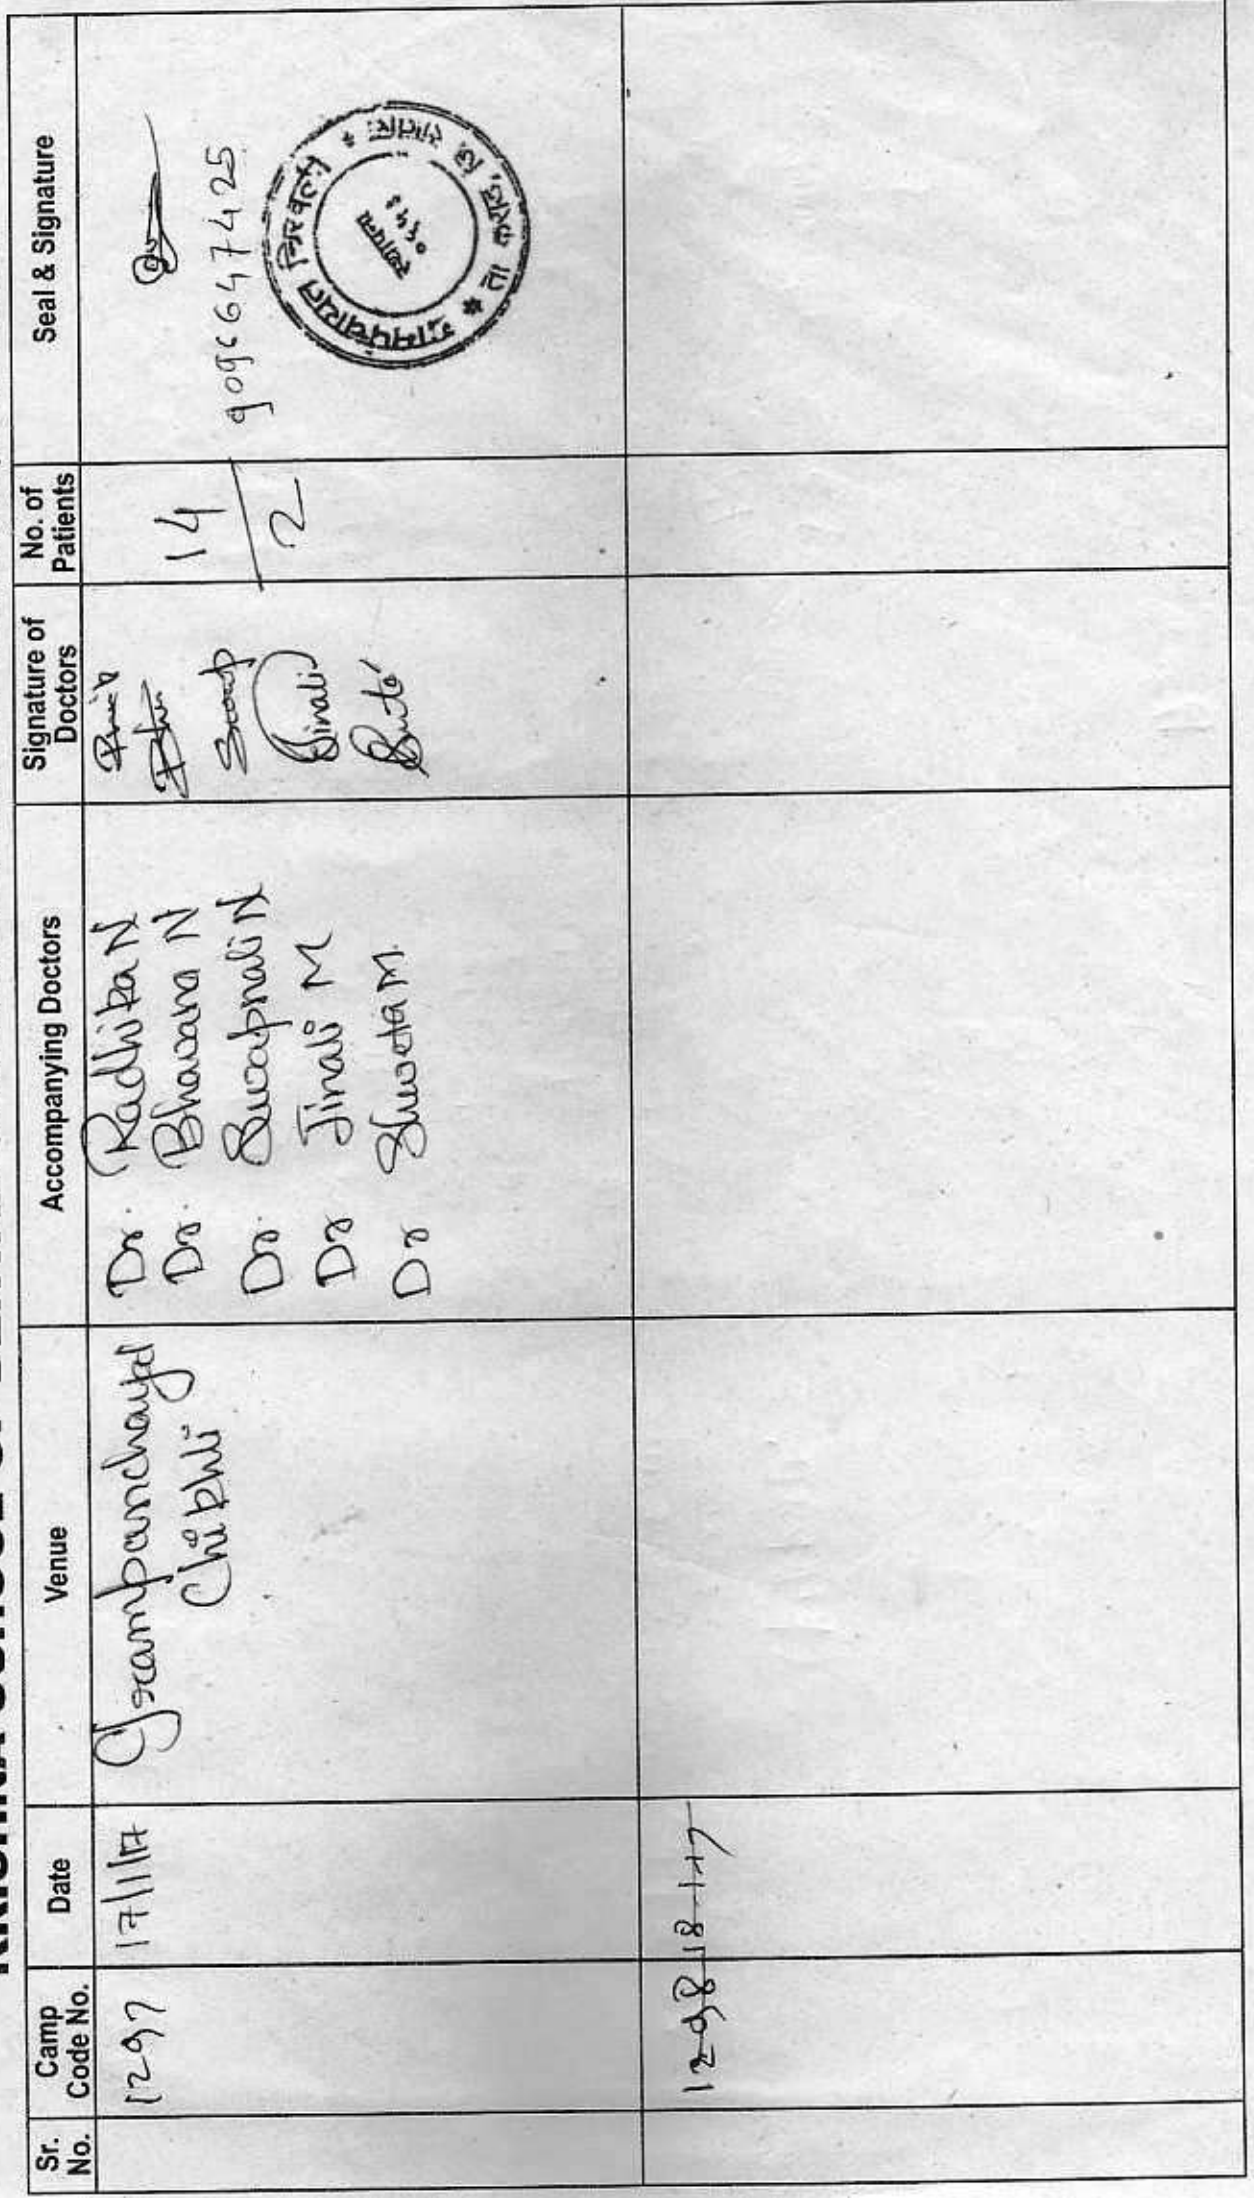 Sr. No.
Camp Code No.
Date
Venue
Accompanying Doctors
Signature of Doctors
No. of Patients
Seal & Signature
1297
17/1/17
Grampanchayat
Chikhli
Dr. Radhika N
Dr. Bhavana N
Dr. Swapnali N
Dr Jinali M
Dr Shweta M.
Jinali
14
2
ग्रामपंचायत चिखली
ता कराड, जि सातारा
स्थापना
1298 18-1-17